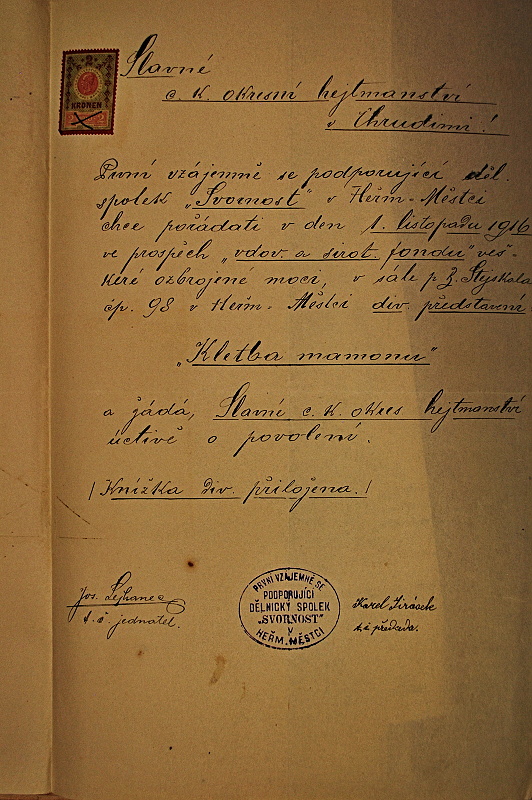 Slavné
c. k. okresní hejtmanství
v Chrudimi!
KRONEN
První vzájemně se podporující děl.
spolek „Svornost" v Heřm. Městci
chce pořádati v den 1. listopadu 1916
ve prospěch „vdov. a sirot. fondu" veš-
keré ozbrojené moci, v sále p. Stejskala
čp. 98 v Heřm. Městci div. představení
„Kletba mamonu"
a žádá, Slavné c. k. okres hejtmanství
úctivě o povolení.
/ Knížka div. přiložena. /
PRVNÍ VZÁJEMNĚ SE
PODPORUJÍCÍ
DĚLNICKÝ SPOLEK
„SVORNOST"
V
HEŘM. MĚSTCI
Jos.
t. č. jednatel.
Karel Jirásek
t. č. předseda.